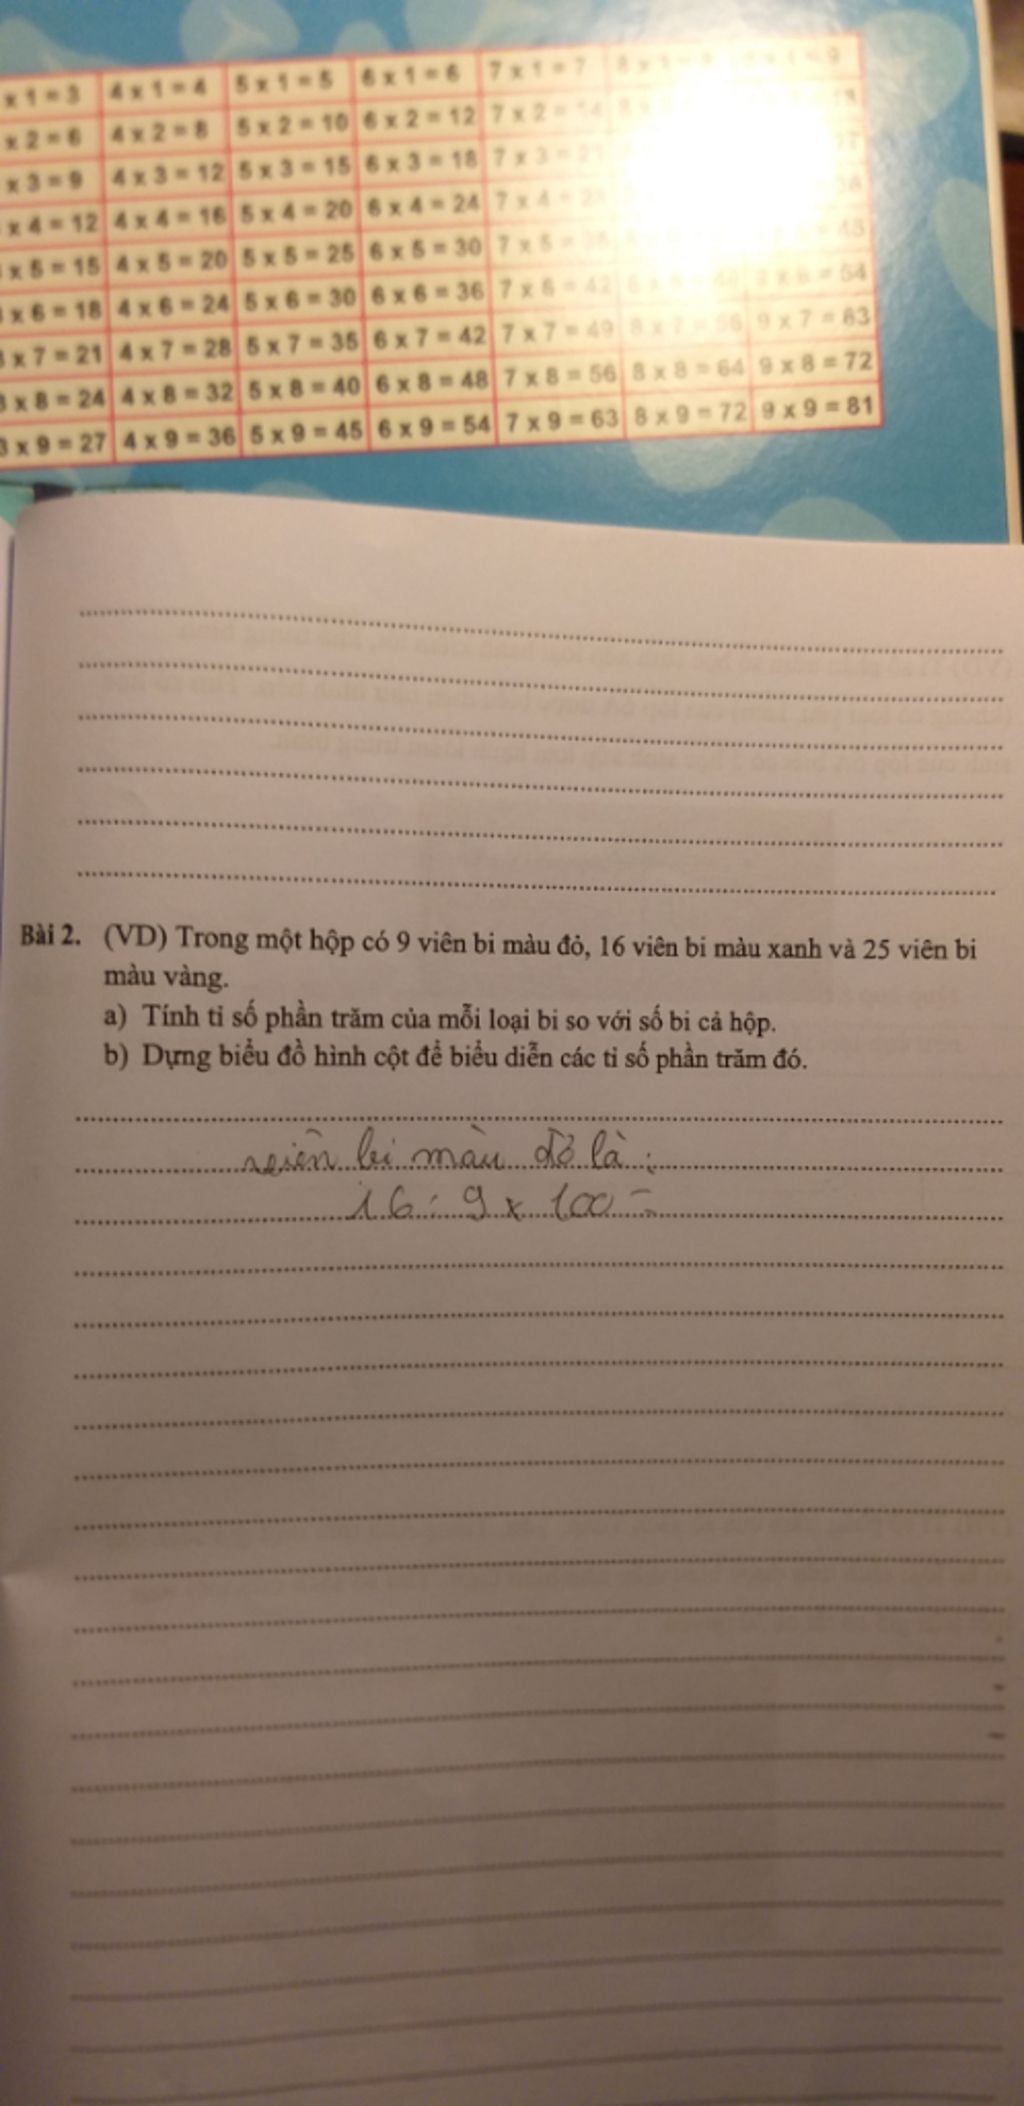 x 1 = 3 4 x 1 = 4 5 x 1 = 5 6 x 1 = 6 7 x 1 = 7
x 2 = 6 4 x 2 = 8 5 x 2 = 10 6 x 2 = 12 7 x 2 = 14
x 3 = 9 4 x 3 = 12 5 x 3 = 15 6 x 3 = 18 7 x 3 = 21
x 4 = 12 4 x 4 = 16 5 x 4 = 20 6 x 4 = 24 7 x 4 = 28
x 5 = 15 4 x 5 = 20 5 x 5 = 25 6 x 5 = 30 7 x 5 = 35 45
x 6 = 18 4 x 6 = 24 5 x 6 = 30 6 x 6 = 36 7 x 6 = 42 9 x 6 = 54
3 x 7 = 21 4 x 7 = 28 5 x 7 = 35 6 x 7 = 42 7 x 7 = 49 8 x 7 = 56 9 x 7 = 63
3 x 8 = 24 4 x 8 = 32 5 x 8 = 40 6 x 8 = 48 7 x 8 = 56 8 x 8 = 64 9 x 8 = 72
3 x 9 = 27 4 x 9 = 36 5 x 9 = 45 6 x 9 = 54 7 x 9 = 63 8 x 9 = 72 9 x 9 = 81
Bài 2. (VD) Trong một hộp có 9 viên bi màu đỏ, 16 viên bi màu xanh và 25 viên bi
màu vàng.
a) Tính tỉ số phần trăm của mỗi loại bi so với số bi cả hộp.
b) Dựng biểu đồ hình cột để biểu diễn các tỉ số phần trăm đó.
viên bi màu đỏ là :
16 : 9 x 100 =